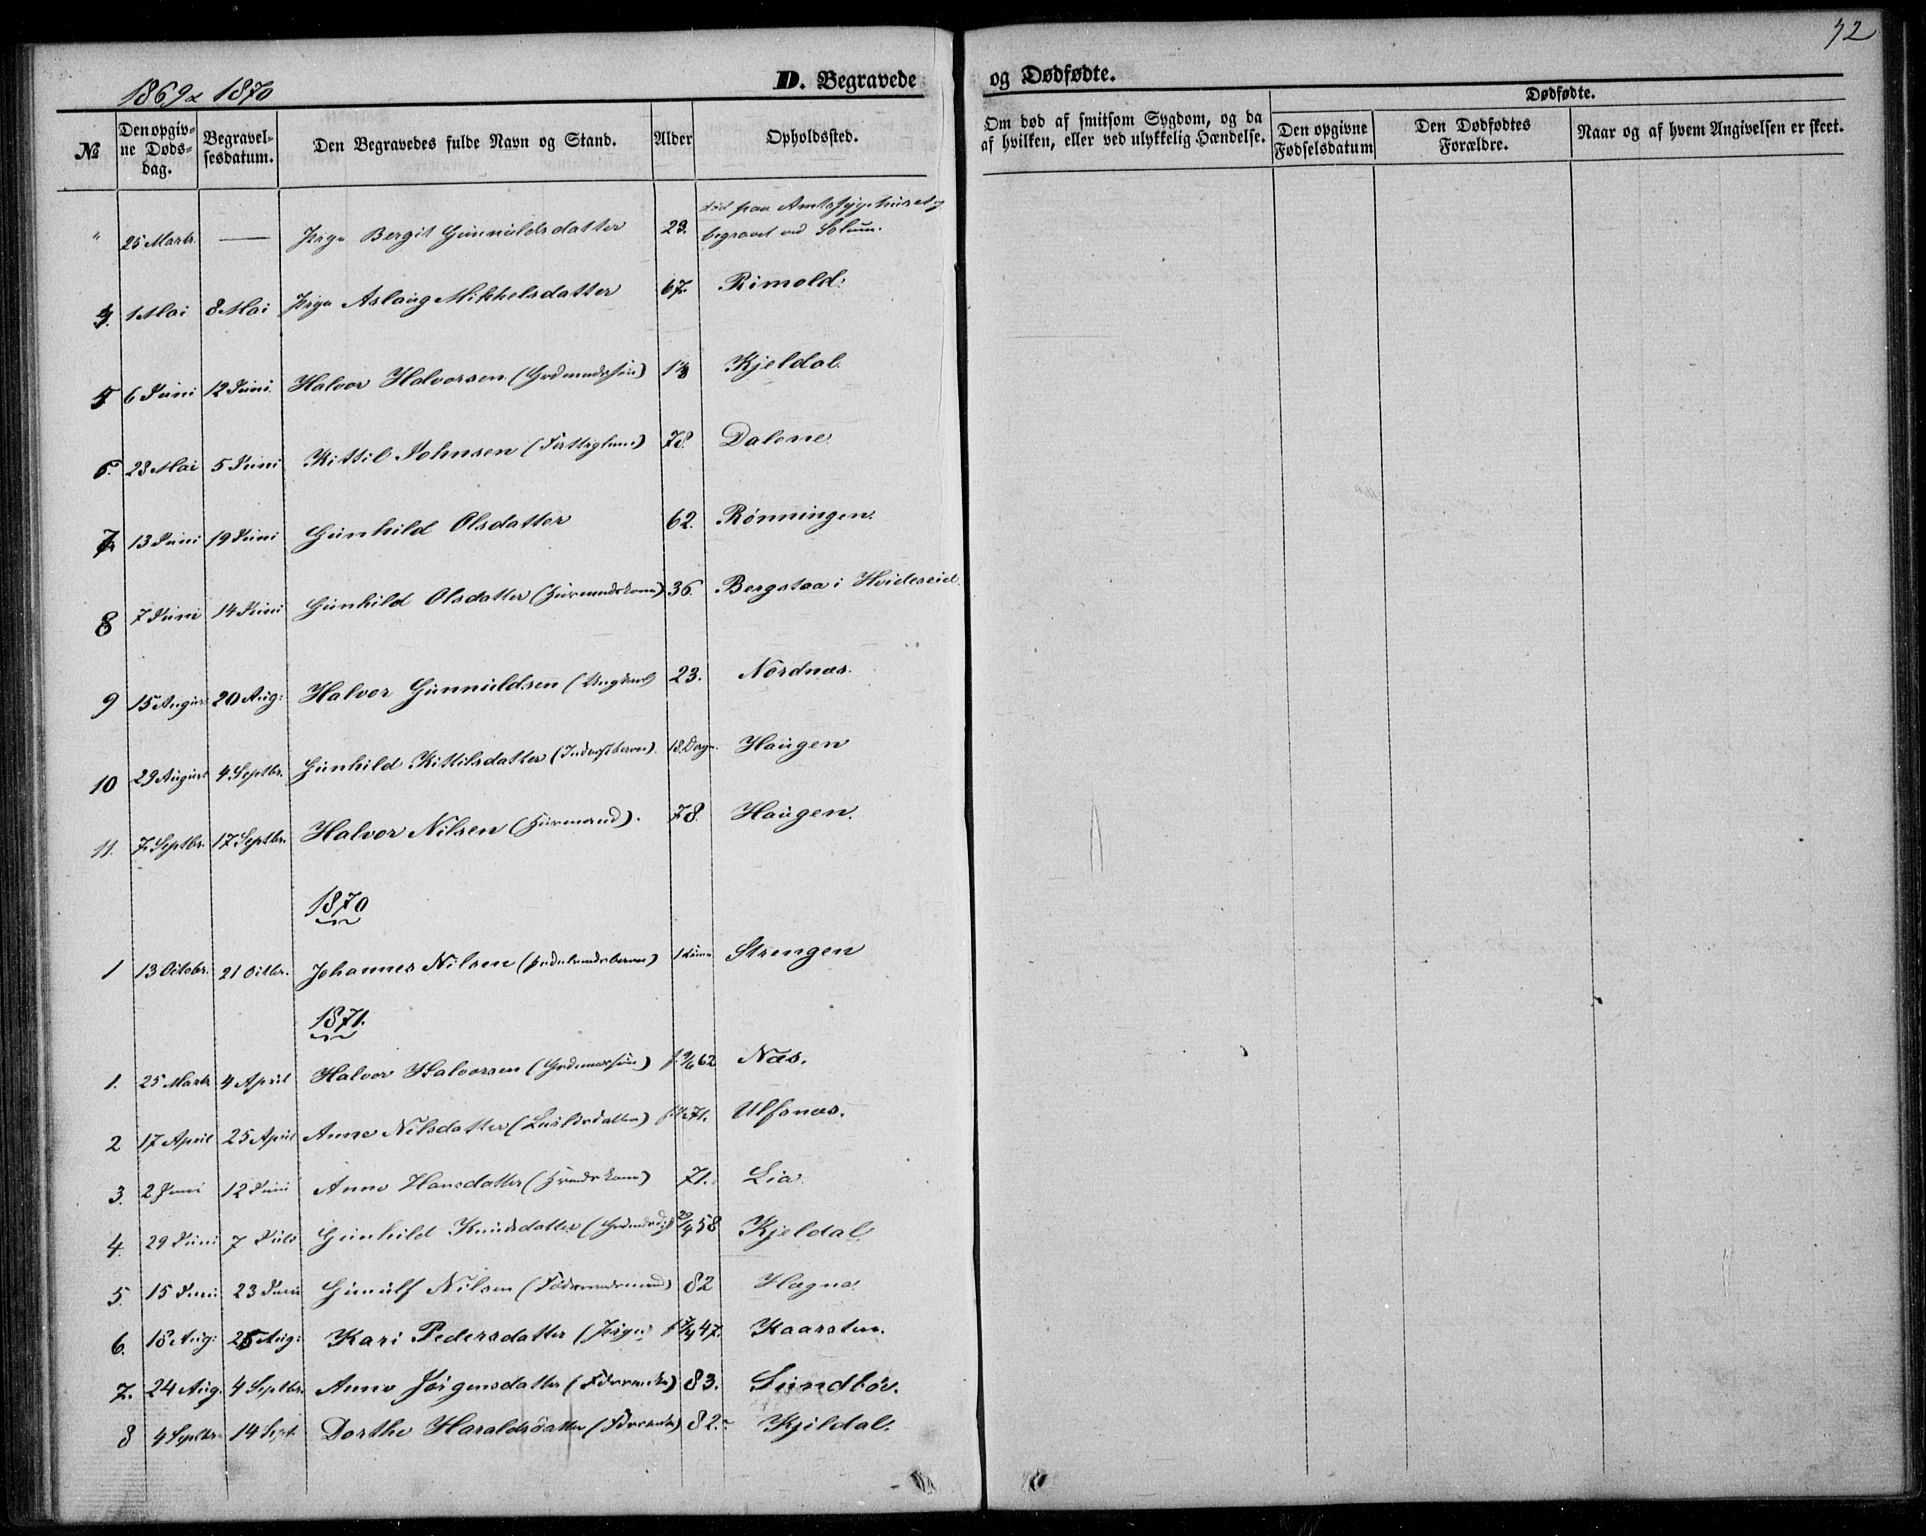 72
1869 & 1870
D. Begravede og Dødfødte.
№
Den opgivne Dødsdag.
Begravelsesdatum.
Den Begravedes fulde Navn og Stand.
Alder
Opholdssted.
Om død af smitsom Sygdom, og da af hvilken, eller ved ulykkelig Hændelse.
Dødfødte.
Den opgivne Fødselsdatum
Den Dødfødtes Forældre.
Naar og af hvem Angivelsen er skeet.
" 25 Marts — Pige Bergit Gunnuldsdatter 29. død paa Amtssygehuset og
begravet ved Solum.
4. 1 Mai 8 Mai Pige Aslaug Mikkelsdatter 67. Rimold:
5 6 Juni 12 Juni Halvor Halvorsen (Grdmandssøn) Kjeldal.
6. 23 Mai 5 Juni Kittil Johnsen (Fattiglem) 78. Dalene.
7. 13 Juni 19 Juni Gunhild Olsdatter 62. Rønningen.
8 7 Juni 14 Juni Gunhild Olsdatter (Huusmandskone) 36. Bergstaa i Hvideseid.
9 15 August 20 Aug: Halvor Gunnuldsen (Ungkarl) 23. Nordnæs.
10 29 August 4 Septbr. Gunhild Kittilsdatter (Inderstbarn). 18. Dage. Haugen
11. 7. Septbr. 17 Septbr. Halvor Nilsen (Huusmand). 78. Haugen.
1870
1 13 Octobr. 21 Octbr. Johannes Nilsen Strengen
1871.
1. 25 Marts 4 April Halvor Halvorsen (Grdmandssøn) 62 Næs.
2 17 April 25 April Anne Nilsdatter 71. Ulfsnæs.
3. 2 Juni 12 Juni Anne Hansdatter 71. Lia
4. 29 Juni 7 Juli Gunhild Knudsdatter 58 Kjeldal
5. 15 Juni 23 Juni Gunulf Nilsen (Føderaadsmand) 82 Hægna
6. 18 Aug: 25 Aug: Kari Pedersdatter (Pige) 47. Kaarsten.
7. 24 Aug. 4 Septbr. Anne Jørgensdatter 83. Sundbøe.
8 4 Septbr 14 Sept. Dorthe Haraldsdatter 82. Kjildal.